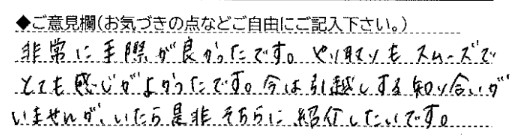 ◆ご意見欄(お気づきの点などご自由にご記入下さい。)
非常に手際が良かったです。やり取りもスムーズで
とても感じがよかったです。今は引越しする知り合いが
いませんが、いたら是非そちらに紹介したいです。